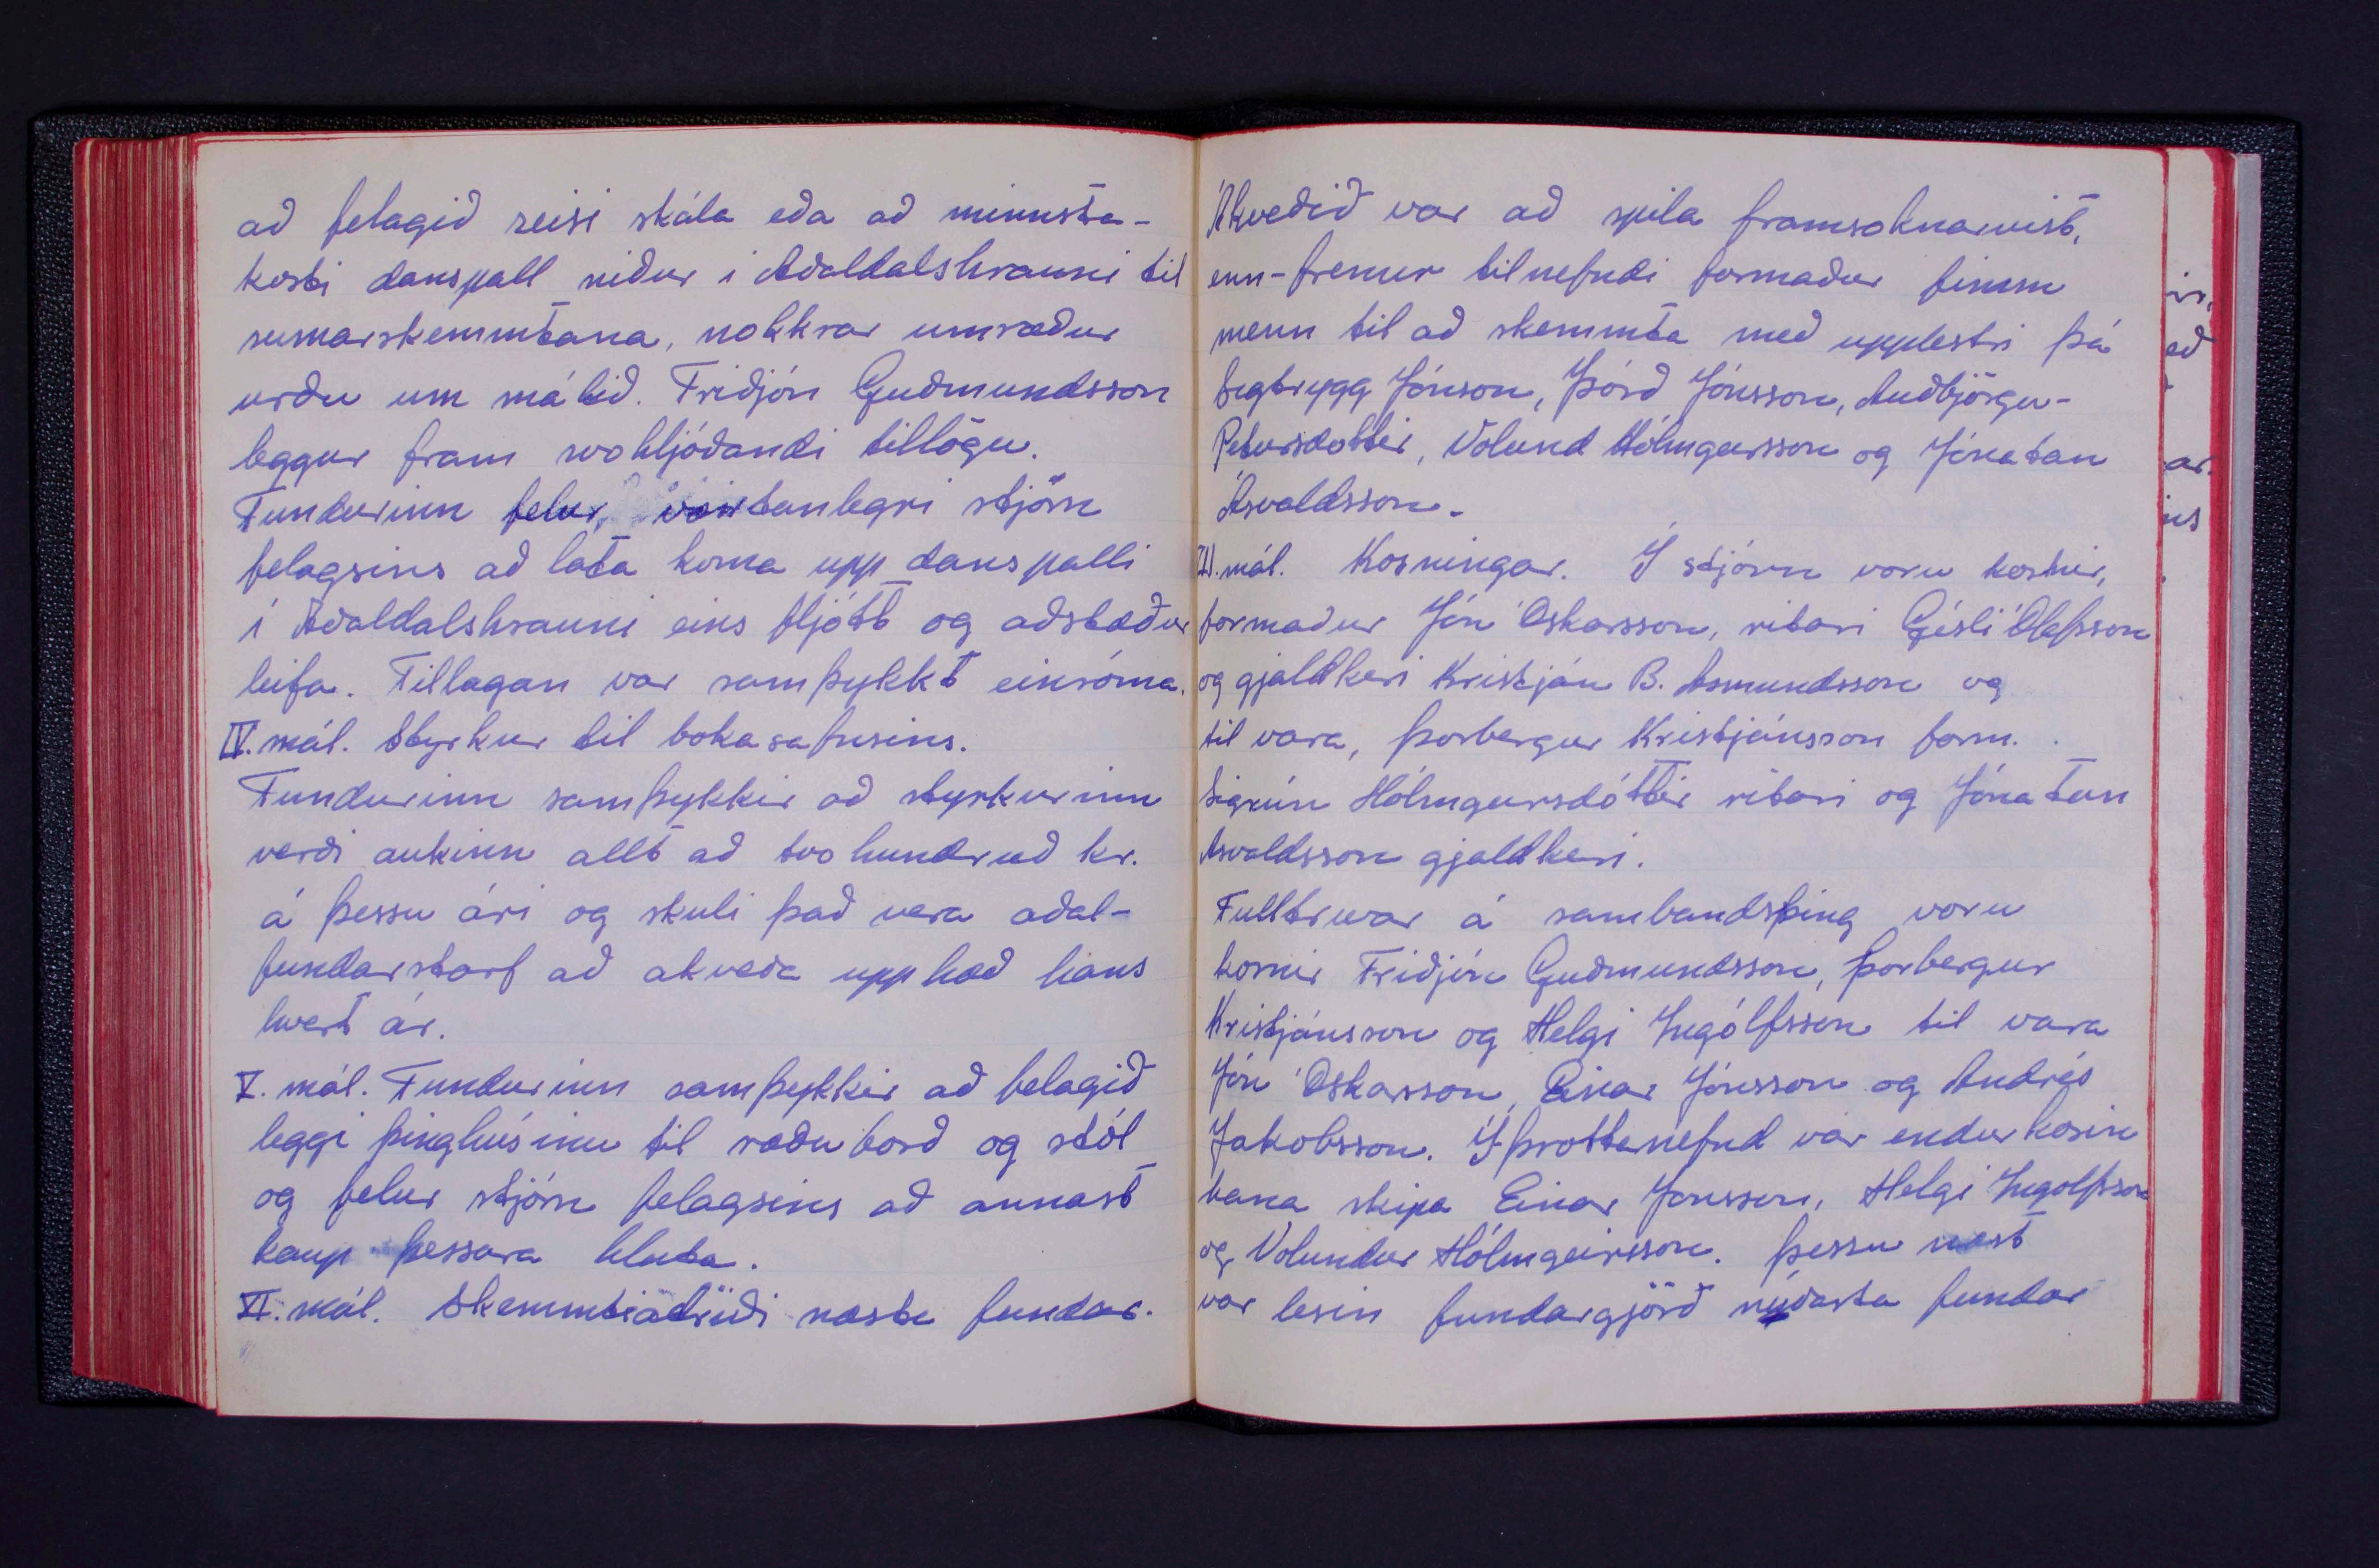 að felagið reisi skála eða að minnsta-
kosti danspall niður i Aðaldalshrauni til
sumarskemmtana, nokkrar umræður
urðu um málið. Friðjón Guðmundsson
leggur fram svohljóðandi tillögu.
Fundurinn felur, væntanlegri stjórn
felagsins að lata koma upp danspalli
í Aðaldalshrauni eins fljótt og aðstæður
leifa. Tillagan var samþykkt einróma.
IV. mál. Styrkur til bokasafnsins.
Fundurinn samþykkir að styrkurinn
verði aukinn allt að tvohundruð kr.
á þessu ári og skuli það vera aðal-
fundarstarf að akveða upphæð hans
hvert ár.
V. mál. Fundurinn samþykkir að felagið
leggi þinghúsinu til ræðuborð og stól
og felur stjórn felagsins að annast
kaup þessara hluta.
VI. mál. Skemmtiatriði næsta fundar.
Ákveðið var að spila framsoknarvist,
enn-fremur tilnefndi formaður fimm
menn til að skemmta með upplestri þá
Sigtrygg Jónson, Þórð Jónsson, Auðbjörgu-
Petursdottir, Volund Hólmgeirsson og Jónatan
Ásvaldsson.
VII. mál. Kosningar. Í stjórn voru kosnir,
formaður Jón Óskarsson, ritari Gísli Ólafsson
og gjaldkeri Kristján B. Asmundsson og
til vara, Þorbergur Kristjánsson form.
Sigrún Hólmgeirsdóttir ritari og Jónatan
Asvaldsson gjaldkeri.
Fulltruar á sambandsþing voru
kosnir Friðjón Guðmundsson, Þorbergur
Kristjánsson og Helgi Ingólfsson til vara
Jón Óskarsson, Einar Jónsson og Andrés
Jakobsson. Íþrottanefnd var endurkosin
hana skipa Einar Jonsson, Helgi Ingolfsson
og Volundur Hólmgeirsson. Þessu næst
var lesin fundargjörð síðasta fundar